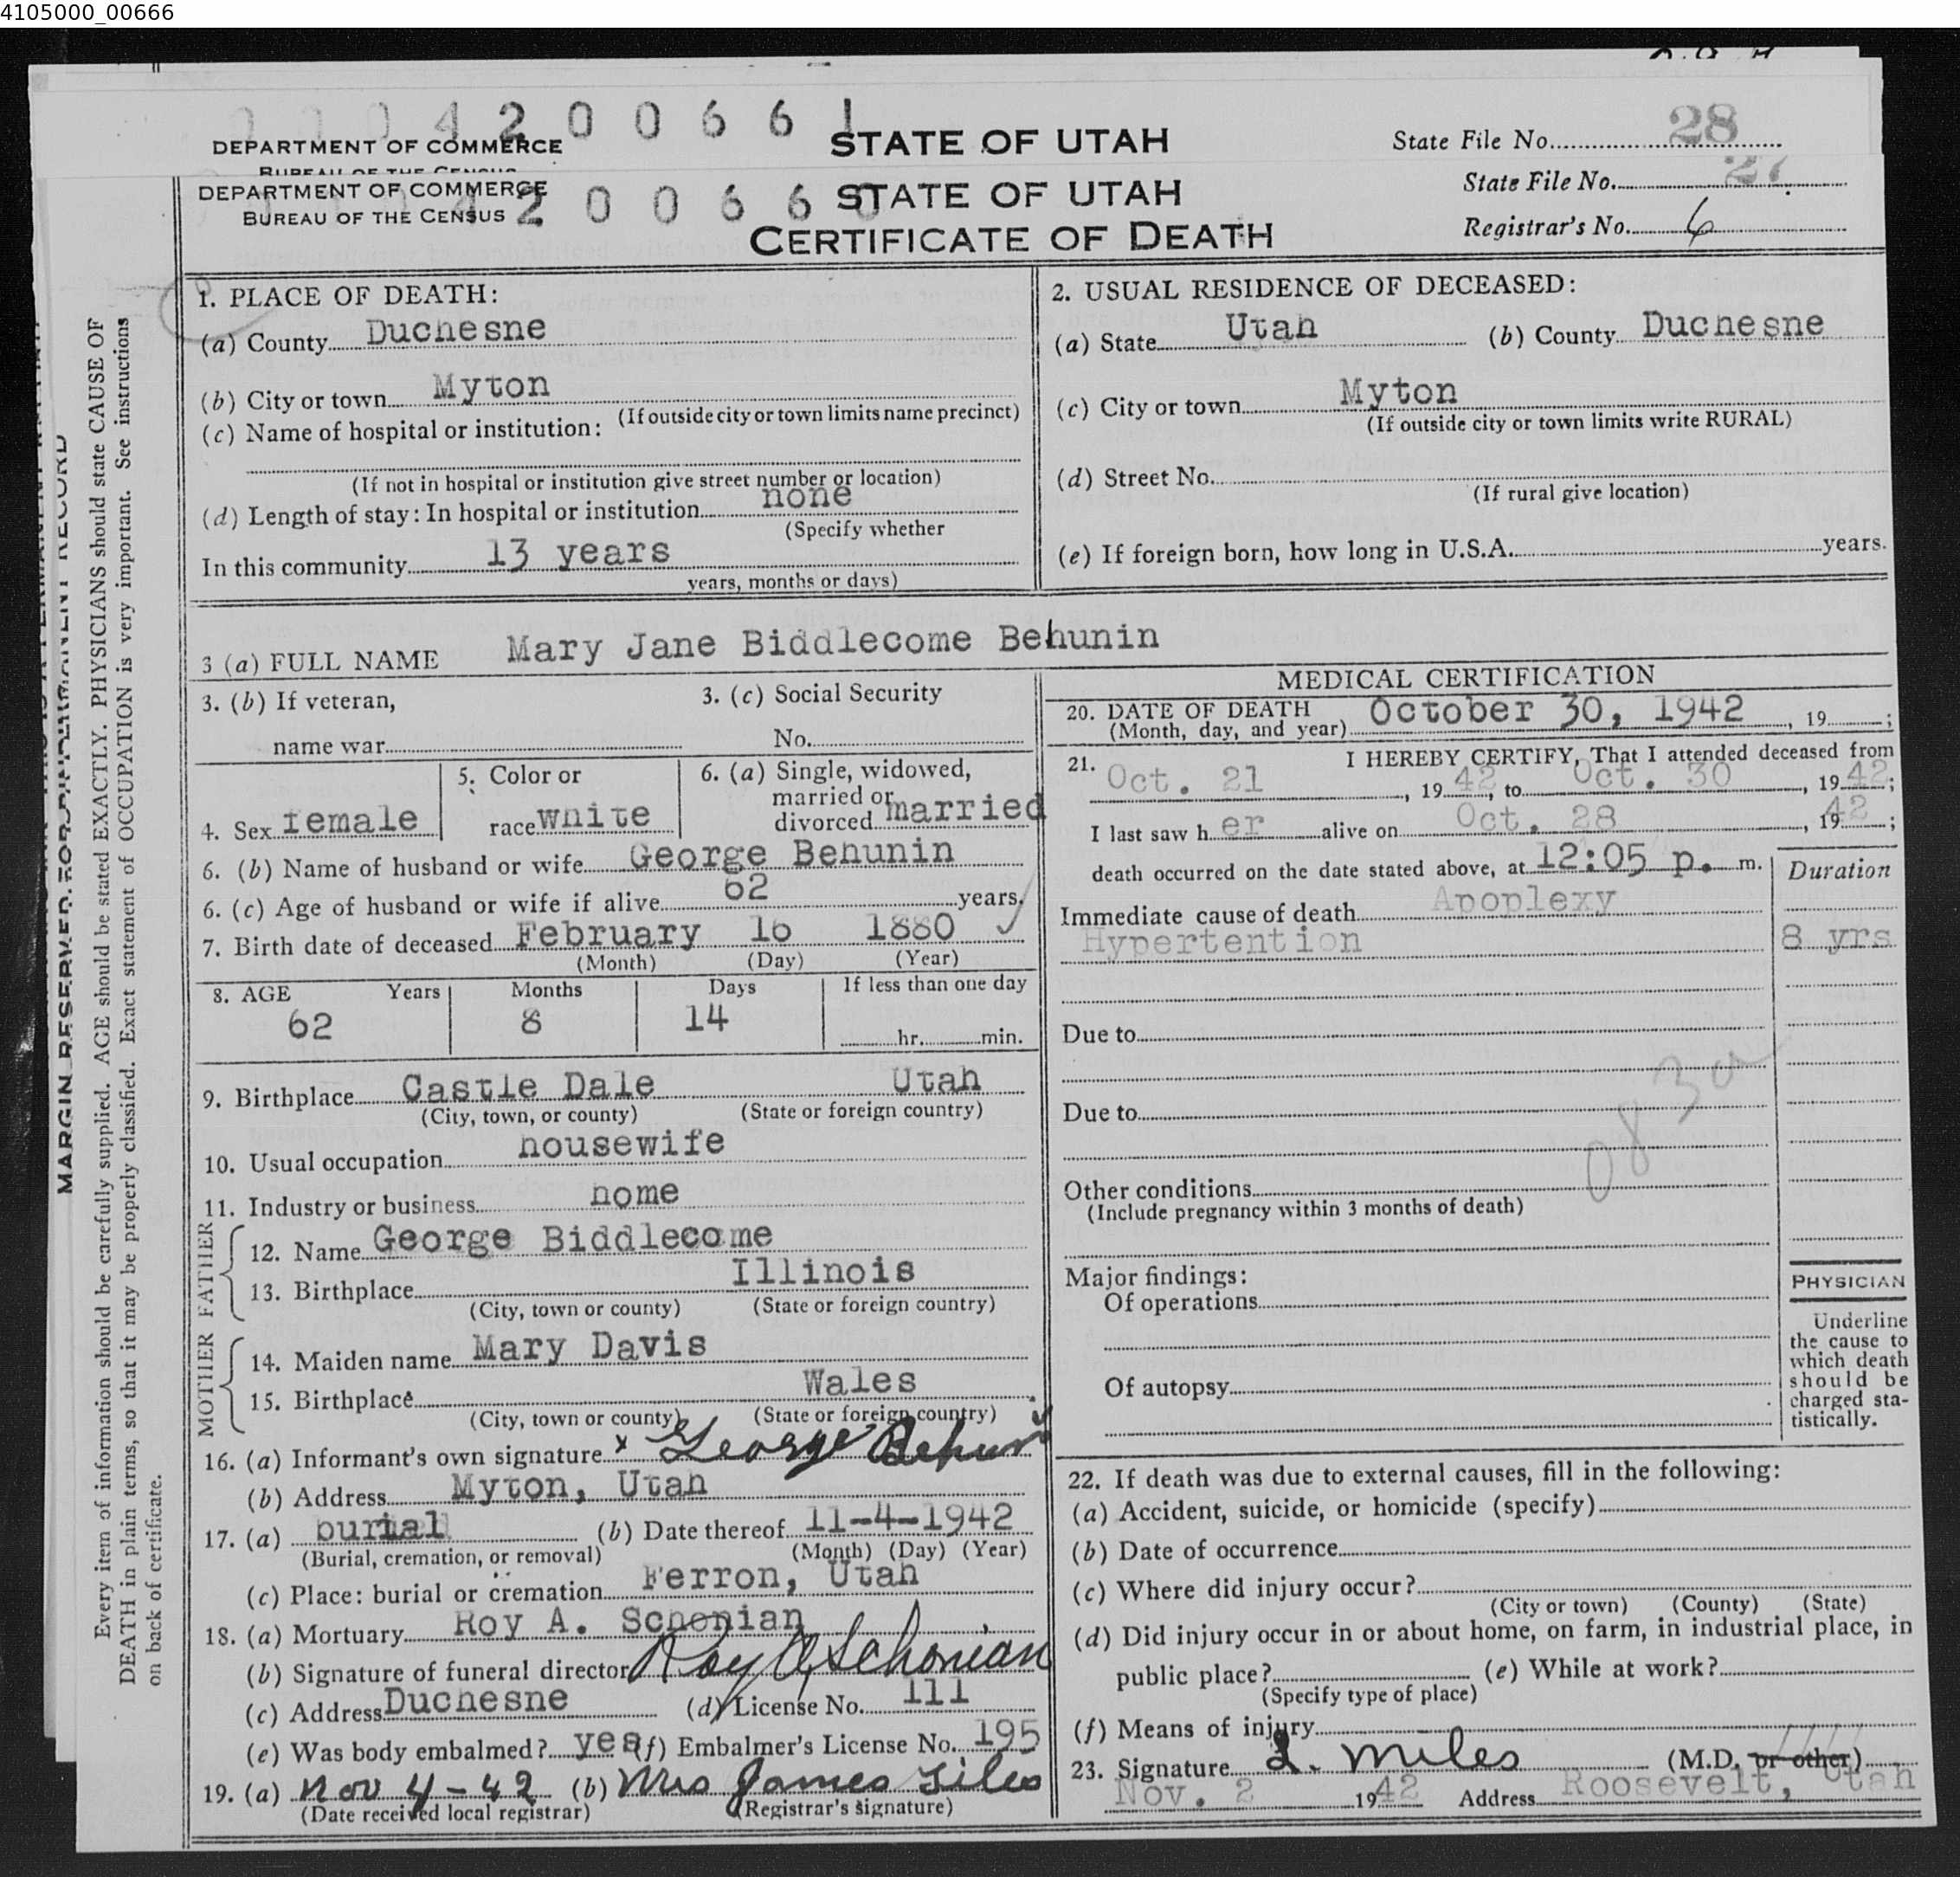 4105000_00666
4 2 0 0 6 6 1
DEPARTMENT OF COMMERCE STATE OF UTAH State File No. 28
BUREAU OF THE CENSUS
DEPARTMENT OF COMMERCE STATE OF UTAH State File No. 27
BUREAU OF THE CENSUS 4 2 0 0 6 6 0
CERTIFICATE OF DEATH Registrar's No. 6
MARGIN RESERVED FOR
PERMANENT RECORD
Every item of information should be carefully supplied. AGE should be stated EXACTLY. PHYSICIANS should state CAUSE OF
DEATH in plain terms, so that it may be properly classified. Exact statement of OCCUPATION is very important. See instructions
on back of certificate.
1. PLACE OF DEATH:
(a) County Duchesne
(b) City or town Myton
(If outside city or town limits name precinct)
(c) Name of hospital or institution:
(If not in hospital or institution give street number or location)
(d) Length of stay: In hospital or institution none
(Specify whether
In this community 13 years
years, months or days)
2. USUAL RESIDENCE OF DECEASED:
(a) State Utah (b) County Duchesne
(c) City or town Myton
(If outside city or town limits write RURAL)
(d) Street No.
(If rural give location)
(e) If foreign born, how long in U.S.A. years.
3 (a) FULL NAME Mary Jane Biddlecome Behunin
3. (b) If veteran, 3. (c) Social Security
name war No.
4. Sex female 5. Color or race white 6. (a) Single, widowed, married or divorced married
6. (b) Name of husband or wife George Behunin
6. (c) Age of husband or wife if alive 62 years.
7. Birth date of deceased February 16 1880
(Month) (Day) (Year)
8. AGE Years Months Days If less than one day
62 8 14 hr. min.
9. Birthplace Castle Dale Utah
(City, town, or county) (State or foreign country)
10. Usual occupation housewife
11. Industry or business home
FATHER
12. Name George Biddlecome
13. Birthplace Illinois
(City, town or county) (State or foreign country)
MOTHER
14. Maiden name Mary Davis
15. Birthplace Wales
(City, town or county) (State or foreign country)
16. (a) Informant's own signature x George Behunin
(b) Address Myton, Utah
17. (a) burial (b) Date thereof 11-4-1942
(Burial, cremation, or removal) (Month) (Day) (Year)
(c) Place: burial or cremation Ferron, Utah
18. (a) Mortuary Roy A. Schonian
(b) Signature of funeral director Roy A Schonian
(c) Address Duchesne (d) License No. 111
(e) Was body embalmed? yes (f) Embalmer's License No. 195
19. (a) Nov 4-42 (b) Mrs James Liles
(Date received local registrar) (Registrar's signature)
MEDICAL CERTIFICATION
20. DATE OF DEATH October 30, 1942, 19 ;
(Month, day, and year)
21. I HEREBY CERTIFY, That I attended deceased from
Oct. 21, 19 42, to Oct. 30, 19 42;
I last saw h er alive on Oct. 28, 19 42;
death occurred on the date stated above, at 12:05 p. m. Duration
Immediate cause of death Apoplexy
Hypertention 8 yrs
Due to
Due to
083a
Other conditions
(Include pregnancy within 3 months of death)
Major findings:
Of operations
Of autopsy
PHYSICIAN
Underline
the cause to
which death
should be
charged sta-
tistically.
22. If death was due to external causes, fill in the following:
(a) Accident, suicide, or homicide (specify)
(b) Date of occurrence
(c) Where did injury occur?
(City or town) (County) (State)
(d) Did injury occur in or about home, on farm, in industrial place, in
public place? (e) While at work?
(Specify type of place)
(f) Means of injury
23. Signature L. Miles (M.D. or other)
Nov. 2 19 42 Address Roosevelt, Utah